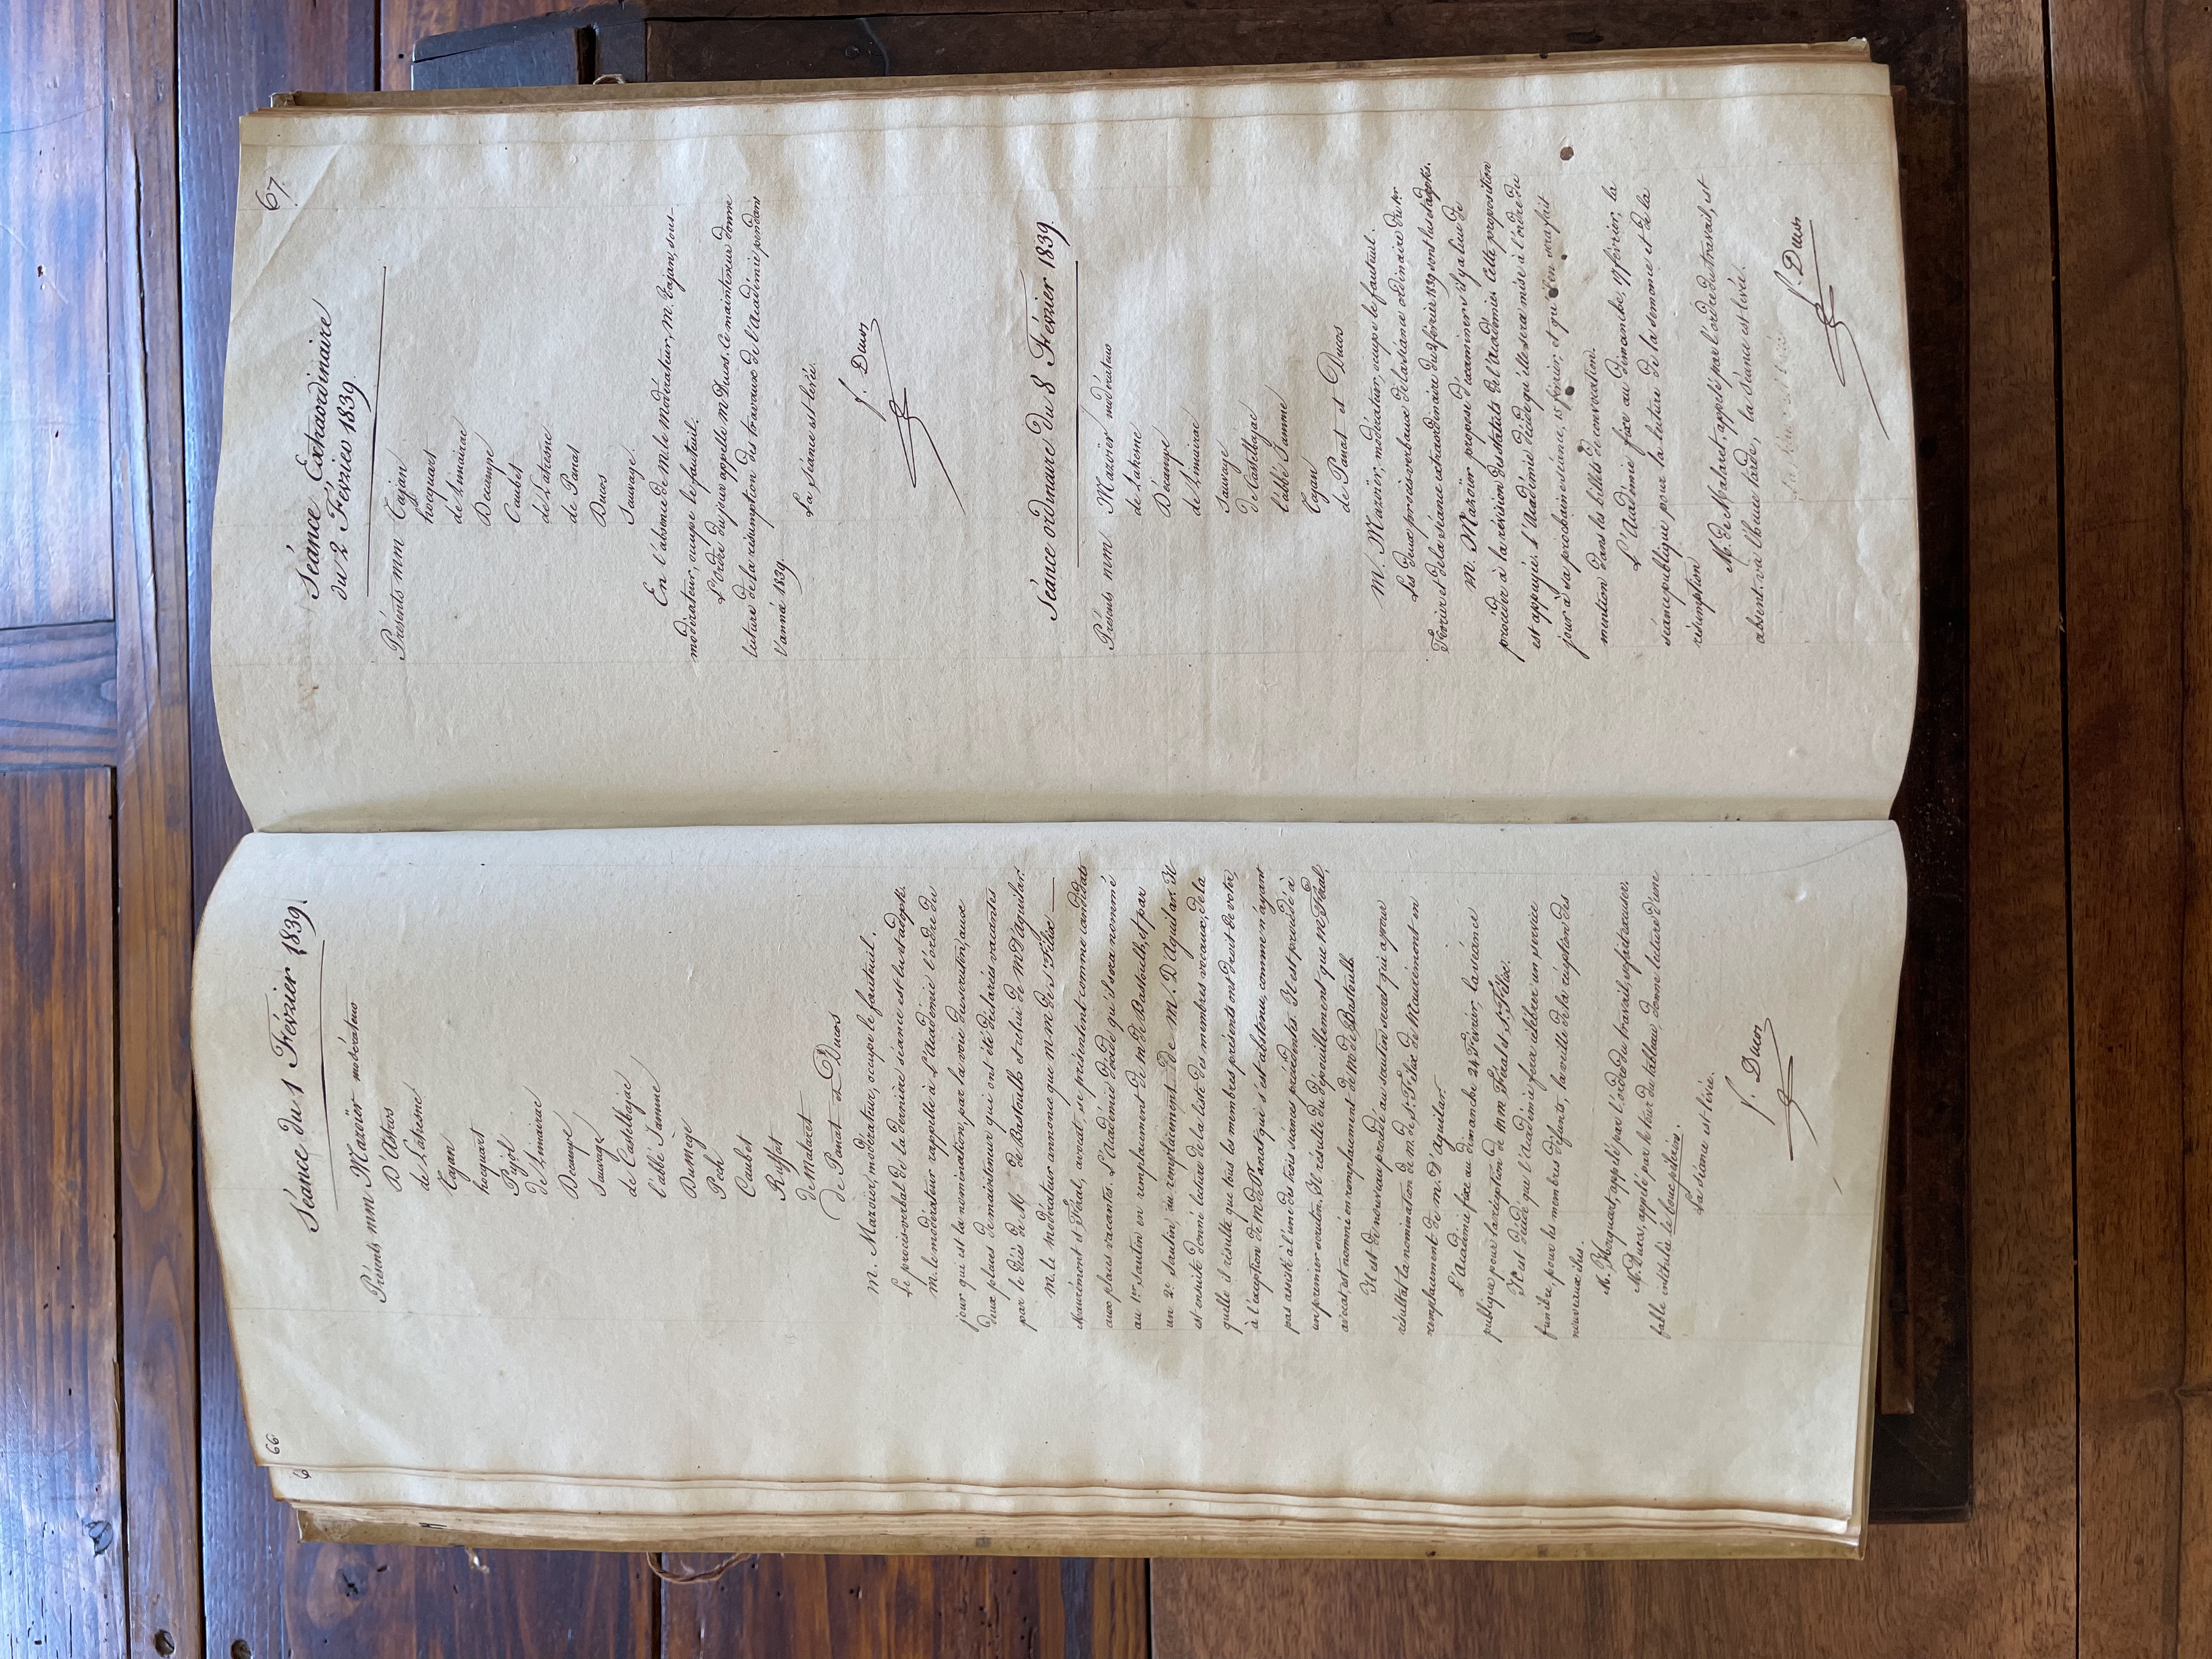 66
Séance du 1 Février 1839.
Présents mm Mazoïer modérateur
D'Astros
de Latresne
Tajan
hocquart
Pujol
de Limairac
Decampe
Sauvage
de Castelbajac
l'abbé Jamme
Dumège
Pech
Caubet
Ruffat
de Malaret
de Panat et Ducos
M. Mazoïer, modérateur, occupe le fauteuil.
Le procès-verbal de la dernière séance est lu et adopté.
M. le modérateur rappelle à l'Académie l'ordre du
jour qui est la nomination, par la voie du scrutin, aux
deux places de mainteneur qui ont été déclarées vacantes
par le décès de M. de Bastoulh et celui de M. D'Aguilar.
M. le modérateur annonce que M.M. de St Félix
Mauremont et Féral, avocat, se présentent comme candidats
aux places vacantes. L'Académie décide qu'il sera nommé
au 1er scrutin en remplacement de M. de Bastoulh, et par
un 2e scrutin, au remplacement de M. D'Aguilar. Il
est ensuite donné lecture de la liste des membres vocaux, de la
quelle il résulte que tous les membres présents ont droit de voter,
à l'exception de M. de Panat qui s'est abstenu, comme n'ayant
pas assisté à l'une des trois séances précédentes. Il est procédé à
un premier scrutin. Il résulte du dépouillement que M. Féral,
avocat est nommé en remplacement de M. de Bastoulh.
Il est de nouveau procédé au scrutin secret qui a pour
résultat la nomination de M. de St Félix de Mauremont en
remplacement de M. D'Aguilar.
L'Académie fixe au dimanche 24 Février, la séance
publique pour la réception de MM Féral et St Félix.
Il est décidé que l'Académie fera célébrer un service
funèbre pour les membres défunts, la veille de la réception des
nouveaux élus.
M. Hocquart, appelé par l'ordre du travail, se fait excuser.
M. Ducos, appelé par le tour du tableau, donne lecture d'une
fable intitulée le bouc pélerin.
La séance est levée.
f. Ducos
67.
Séance Extraordinaire
du 2 Février 1839.
Présents mm Tajan
hocquart
de Limairac
Decampe
Caubet
de Latresne
de Panat
Ducos
Sauvage.
En l'absence de M. le Modérateur, M. Tajan, sous-
modérateur, occupe le fauteuil.
L'ordre du jour appelle M. Ducos. Ce mainteneur donne
lecture de la résumption des travaux de l'Académie pendant
l'année 1839.
La Séance est levée.
f. Ducos
Séance ordinaire du 8 Février 1839.
Présents mm Mazoïer modérateur
de Latresne
Décampe
de Limairac
Sauvage
de Castelbajac
l'abbé Jamme
Tajan
de Panat et Ducos
M. Mazoïer, modérateur, occupe le fauteuil.
Les deux procès-verbaux de la séance ordinaire du 1er
Février et de la séance extraordinaire du 2 février 1839 sont lus et adoptés.
M. Mazoïer propose d'examiner s'il y a lieu de
procéder à la révision des statuts de l'Académie. Cette proposition
est appuyée. L'Académie décide qu'elle sera mise à l'ordre du
jour à sa prochaine séance, 15 février, et qu'il en sera fait
mention dans les billets de convocation.
L'Académie fixe au dimanche, 17 février, la
séance publique pour la lecture de la semonce et de la
résumption
M. de Malaret, appelé par l'ordre du travail, est
absent. vu l'heure tarde, la séance est levée.
f. Ducos